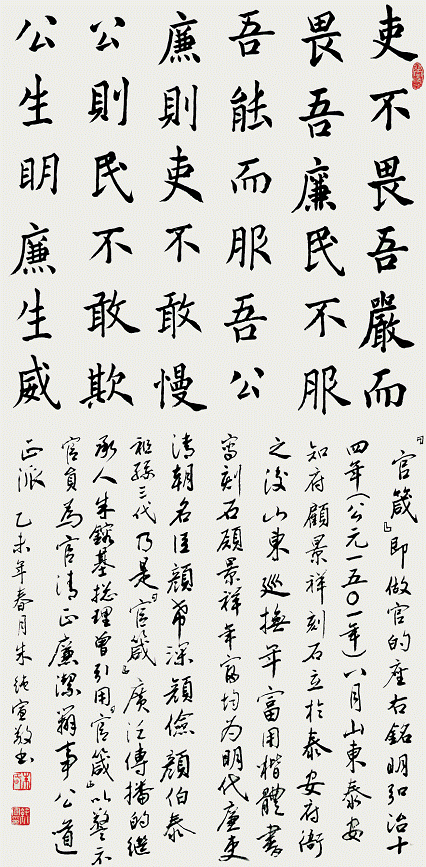 吏不畏吾嚴而
畏吾廉民不服
吾能而服吾公
廉則吏不敢慢
公則民不敢欺
公生明廉生威
『官箴』即做官的座右銘明弘治十
四年(公元一五〇一年)八月山東泰安
知府顧景祥刻石立於泰安府衙
之後山東巡撫年富用楷體書
寫刻石顧景祥年富均为明代廉吏
清朝名臣顏希深顏儉顏伯泰
祖孫三代乃是『官箴』廣泛傳播的継
承人朱鎔基總理曾引用『官箴』以警示
官員為官清正廉潔辦事公道
正派 乙未年春月朱純宣敬书